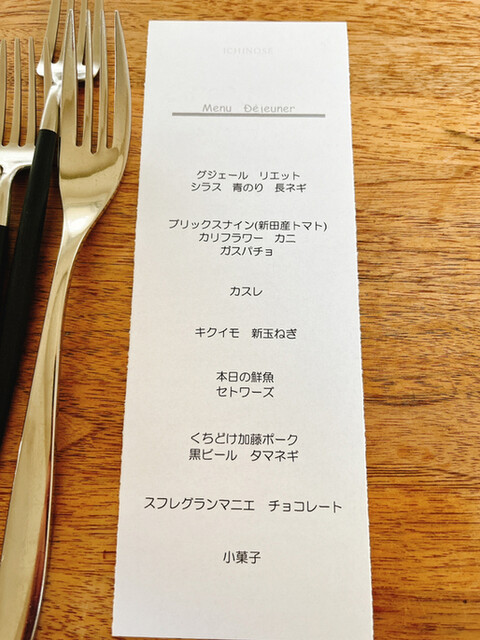 ICHINOSE
Menu Déjeuner
グジェール リエット
シラス 青のり 長ネギ
ブリックスナイン(新田産トマト)
カリフラワー カニ
ガスパチョ
カスレ
キクイモ 新玉ねぎ
本日の鮮魚
セトワーズ
くちどけ加藤ポーク
黒ビール タマネギ
スフレグランマニエ チョコレート
小菓子